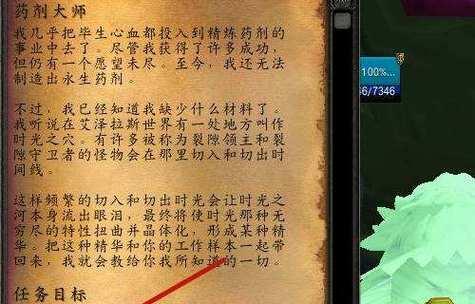 药剂大师
我几乎把毕生心血都投入到精炼药剂的
事业中去了。尽管我获得了许多成功，
但仍有一个愿望未尽。至今，我还无法
制造出永生药剂。
不过，我已经知道我缺少什么材料了。
我听说在艾泽拉斯世界有一处地方叫作
时光之穴。有许多被称为裂隙领主和裂
隙守卫者的怪物会在那里切入和切出时
间线。
这样频繁的切入和切出时光会让时光之
河本身流出眼泪，最终将使时光那种无
穷尽的特性扭曲并晶体化，形成某种精
华。把这种精华和你的工作样本一起带
回来，我就会教给你我所知道的一切。
任务目标
100%...
6/7346